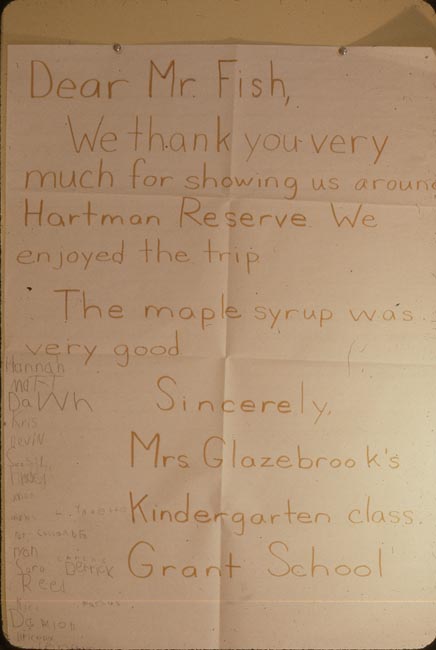 Dear Mr. Fish,
We thank you very
much for showing us around
Hartman Reserve. We
enjoyed the trip
The maple syrup was
very good
Sincerely,
Mrs Glazebrook's
Kindergarten class.
Grant School
Hannah
maTT
DaWn
Kris
Sara
Derrick
Reed
Damion